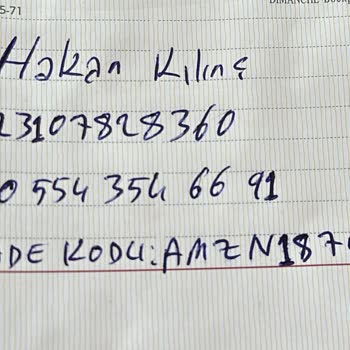 5-71
DIMANCHE
Hakan Kılınç
23107828360
0 554 354 66 91
DE KODU: AMZN187